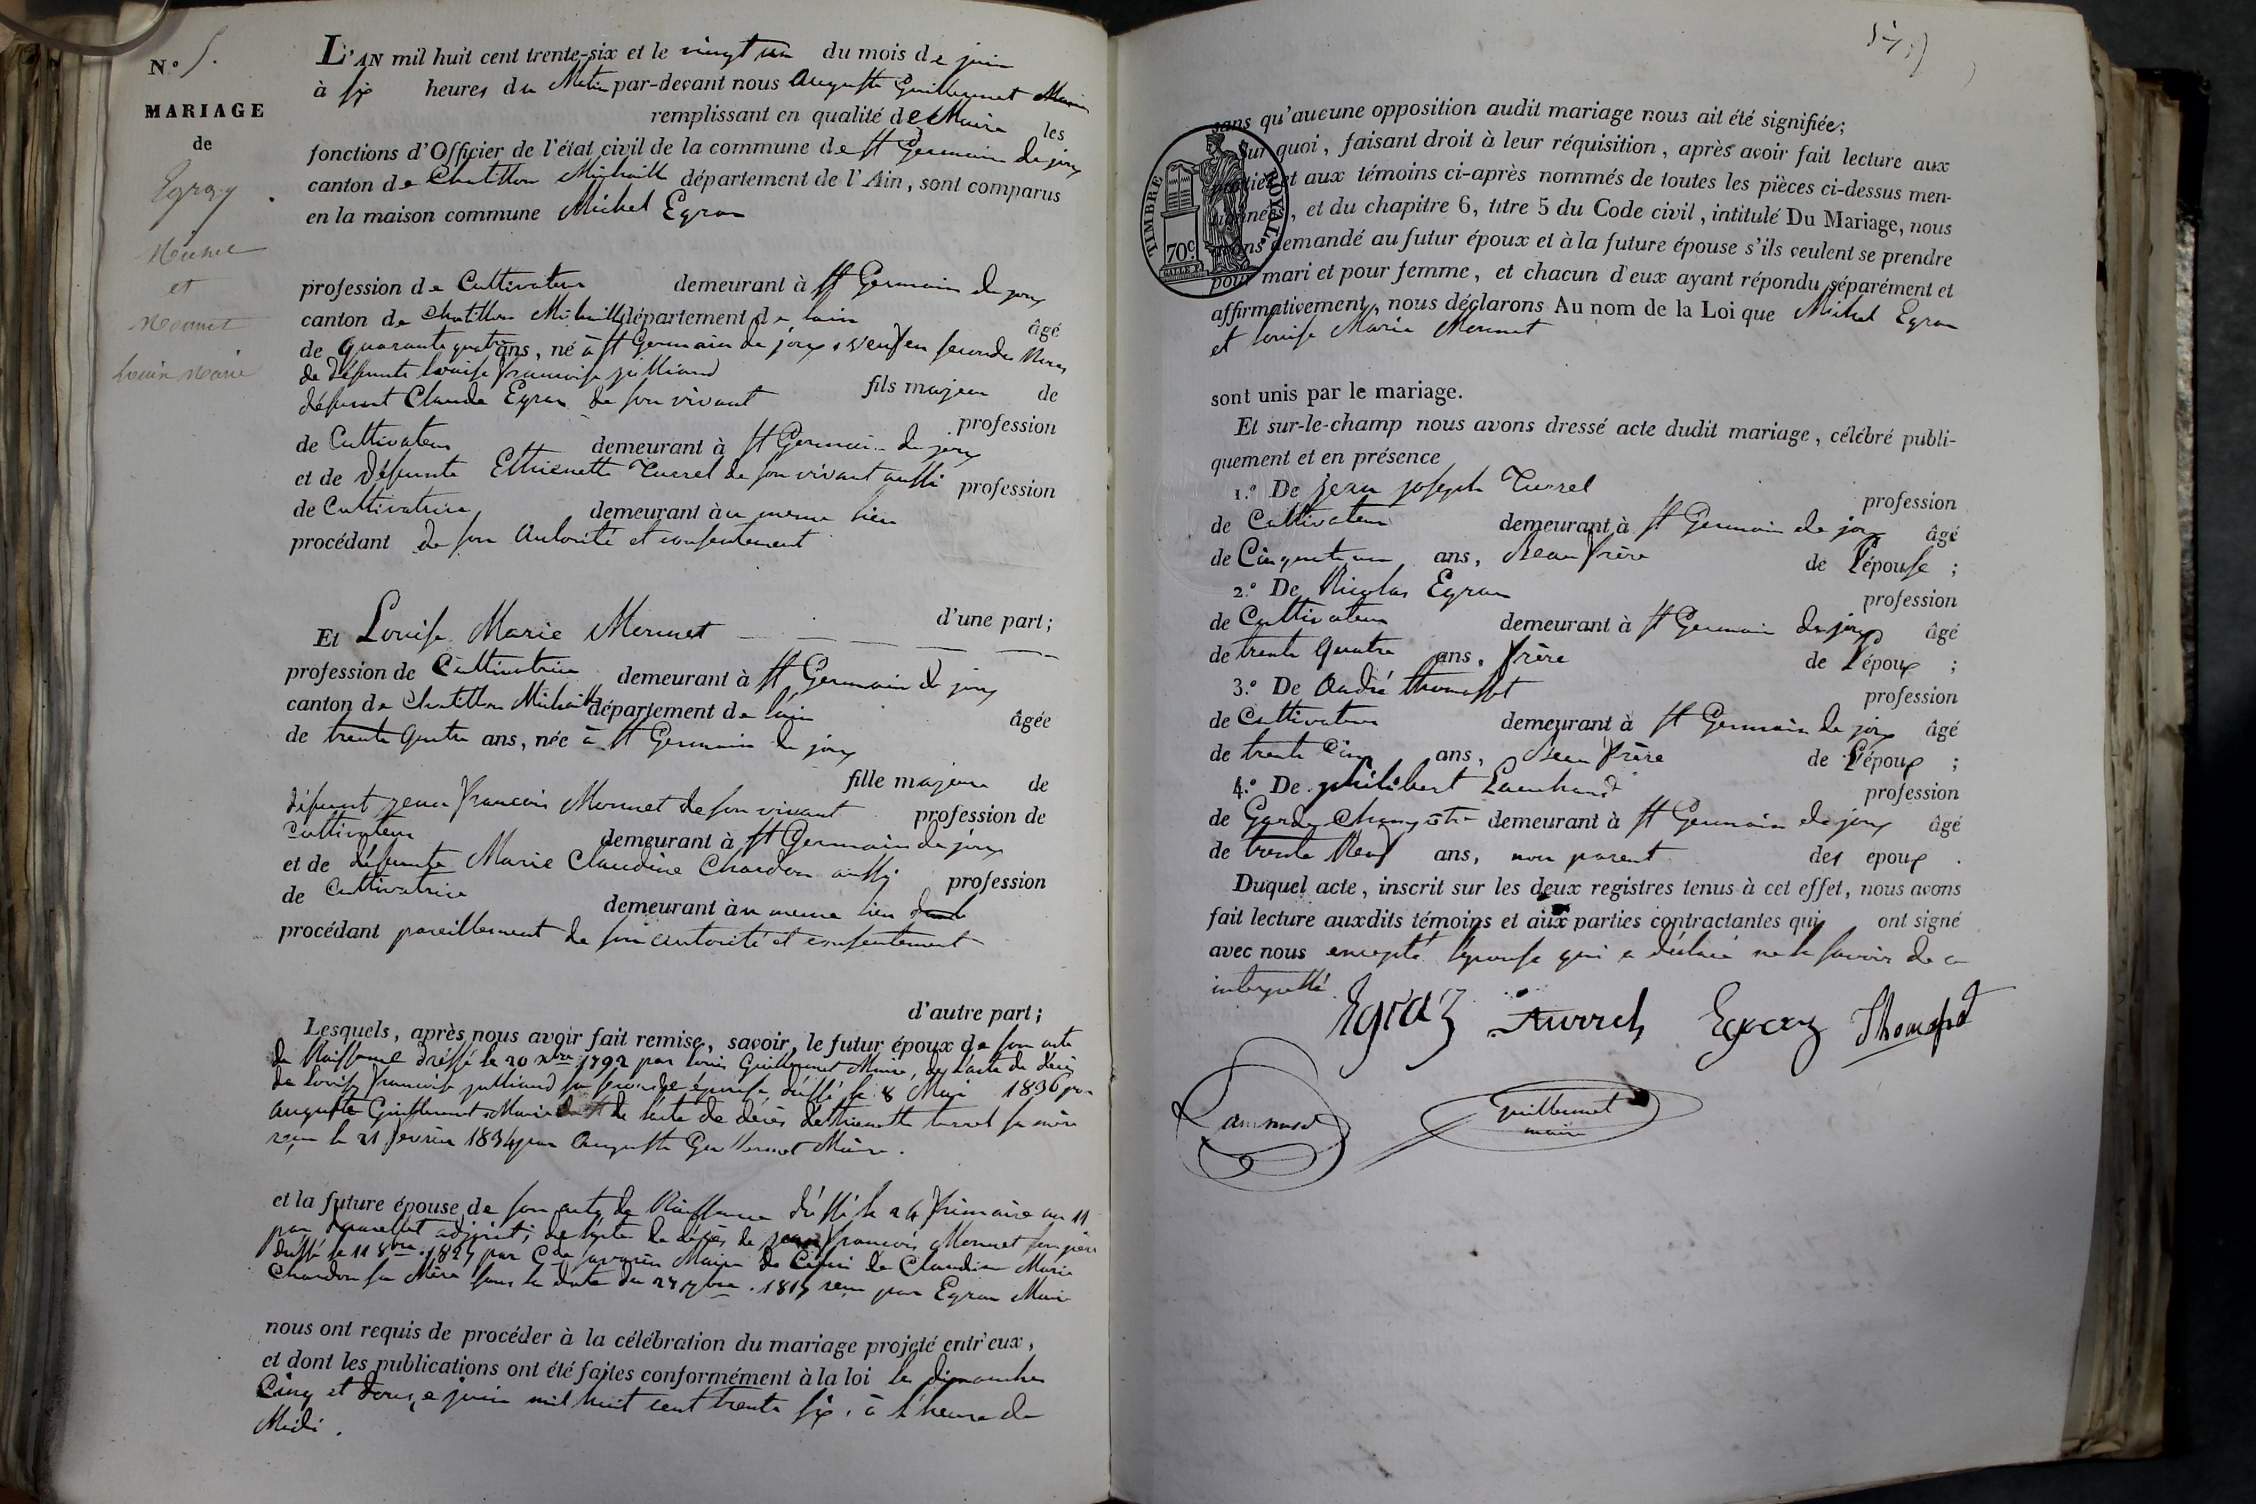 N.º 5.
MARIAGE
de
Egraz
Michel
et
Monnet
Louise Marie
L'AN mil huit cent trente-six et le vingt un du mois de juin
à six heures du Matin par-devant nous Auguste Guillermet Maire
remplissant en qualité de Maire les
fonctions d'Officier de l'état civil de la commune de St Germain de joux
canton de Chatillon Michaille département de l'Ain, sont comparus
en la maison commune Michel Egraz
profession de Cultivateur demeurant à St Germain de joux
canton de Chatillon Michaille département de l'ain âgé
de quarante quatre ans, né à St Germain de joux, veuf en secondes Noces
de défunte Louise françoise julliand fils majeur de
défunt Claude Egraz de son vivant profession
de Cultivateur demeurant à St Germain de joux
et de défunte Ethienette Turrel de son vivant aussi profession
de Cultivatrice demeurant au meme lieu
procédant de son Autorité et consentement
d'une part;
Et Louise Marie Monnet
profession de Cultivatrice demeurant à St Germain de joux
canton de Chatillon Michaille département de l'ain âgée
de trente quatre ans, née à St Germain de joux
fille majeure de
défunt jean françois Monnet de son vivant profession de
cultivateur demeurant à St Germain de joux
et de défunte Marie Claudine Chardon aussi profession
de Cultivatrice demeurant au meme lieu
procédant pareillement de son autorité et consentement
d'autre part;
Lesquels, après nous avoir fait remise, savoir, le futur époux de son acte
de Naissance dréssé le 20 xbre 1792 par Louis Guillermet Maire, de l'acte de décès
de Louise françoise julliand sa seconde épouse dréssé le 8 Mai 1836 par
Auguste Guillermet Maire de l'acte de décès d'ethienette turrel sa mère
reçu le 21 février 1834 par Auguste Guillermet Maire.
et la future épouse de son acte de Naissance dréssé le 24 frimaire an 11
par adjoint; de l'acte de décès de jean françois Monnet son père
dréssé le 11 8bre 1827 par Maire de Celui de Claudine Marie
Chardon sa Mère sous la date du 27 9bre 1817 reçu par Egraz Maire
nous ont requis de procéder à la célébration du mariage projeté entr'eux,
et dont les publications ont été faites conformément à la loi les dimanches
Cinq et douze juin mil huit cent trente six, à l'heure de
Midi.
sans qu'aucune opposition audit mariage nous ait été signifiée;
Sur quoi, faisant droit à leur réquisition, après avoir fait lecture aux
parties et aux témoins ci-après nommés de toutes les pièces ci-dessus men-
tionnées, et du chapitre 6, titre 5 du Code civil, intitulé Du Mariage, nous
avons demandé au futur époux et à la future épouse s'ils veulent se prendre
pour mari et pour femme, et chacun d'eux ayant répondu séparément et
affirmativement, nous déclarons Au nom de la Loi que Michel Egraz
et Louise Marie Monnet
TIMBRE ROYAL
70 c.
sont unis par le mariage.
Et sur-le-champ nous avons dressé acte dudit mariage, célébré publi-
quement et en présence
1.º De jean joseph Turrel profession
de Cultivateur demeurant à St Germain de joux âgé
de Cinquante un ans, Beau frère de L'épouse;
2.º De Nicolas Egraz profession
de Cultivateur demeurant à St Germain de joux âgé
de trente quatre ans, frère de L'époux;
3.º De André Thomasset profession
de Cultivateur demeurant à St Germain de joux âgé
de trente Cinq ans, Beau frère de L'époux;
4.º De philibert profession
de Garde Champêtre demeurant à St Germain de joux âgé
de trente Neuf ans, non parent des epoux.
Duquel acte, inscrit sur les deux registres tenus à cet effet, nous avons
fait lecture auxdits témoins et aux parties contractantes qui ont signé
avec nous excepté l'épouse qui a déclaré ne le savoir de ce
interpellé.
Egraz Turrel Egraz Thomasset
Guillermet
maire